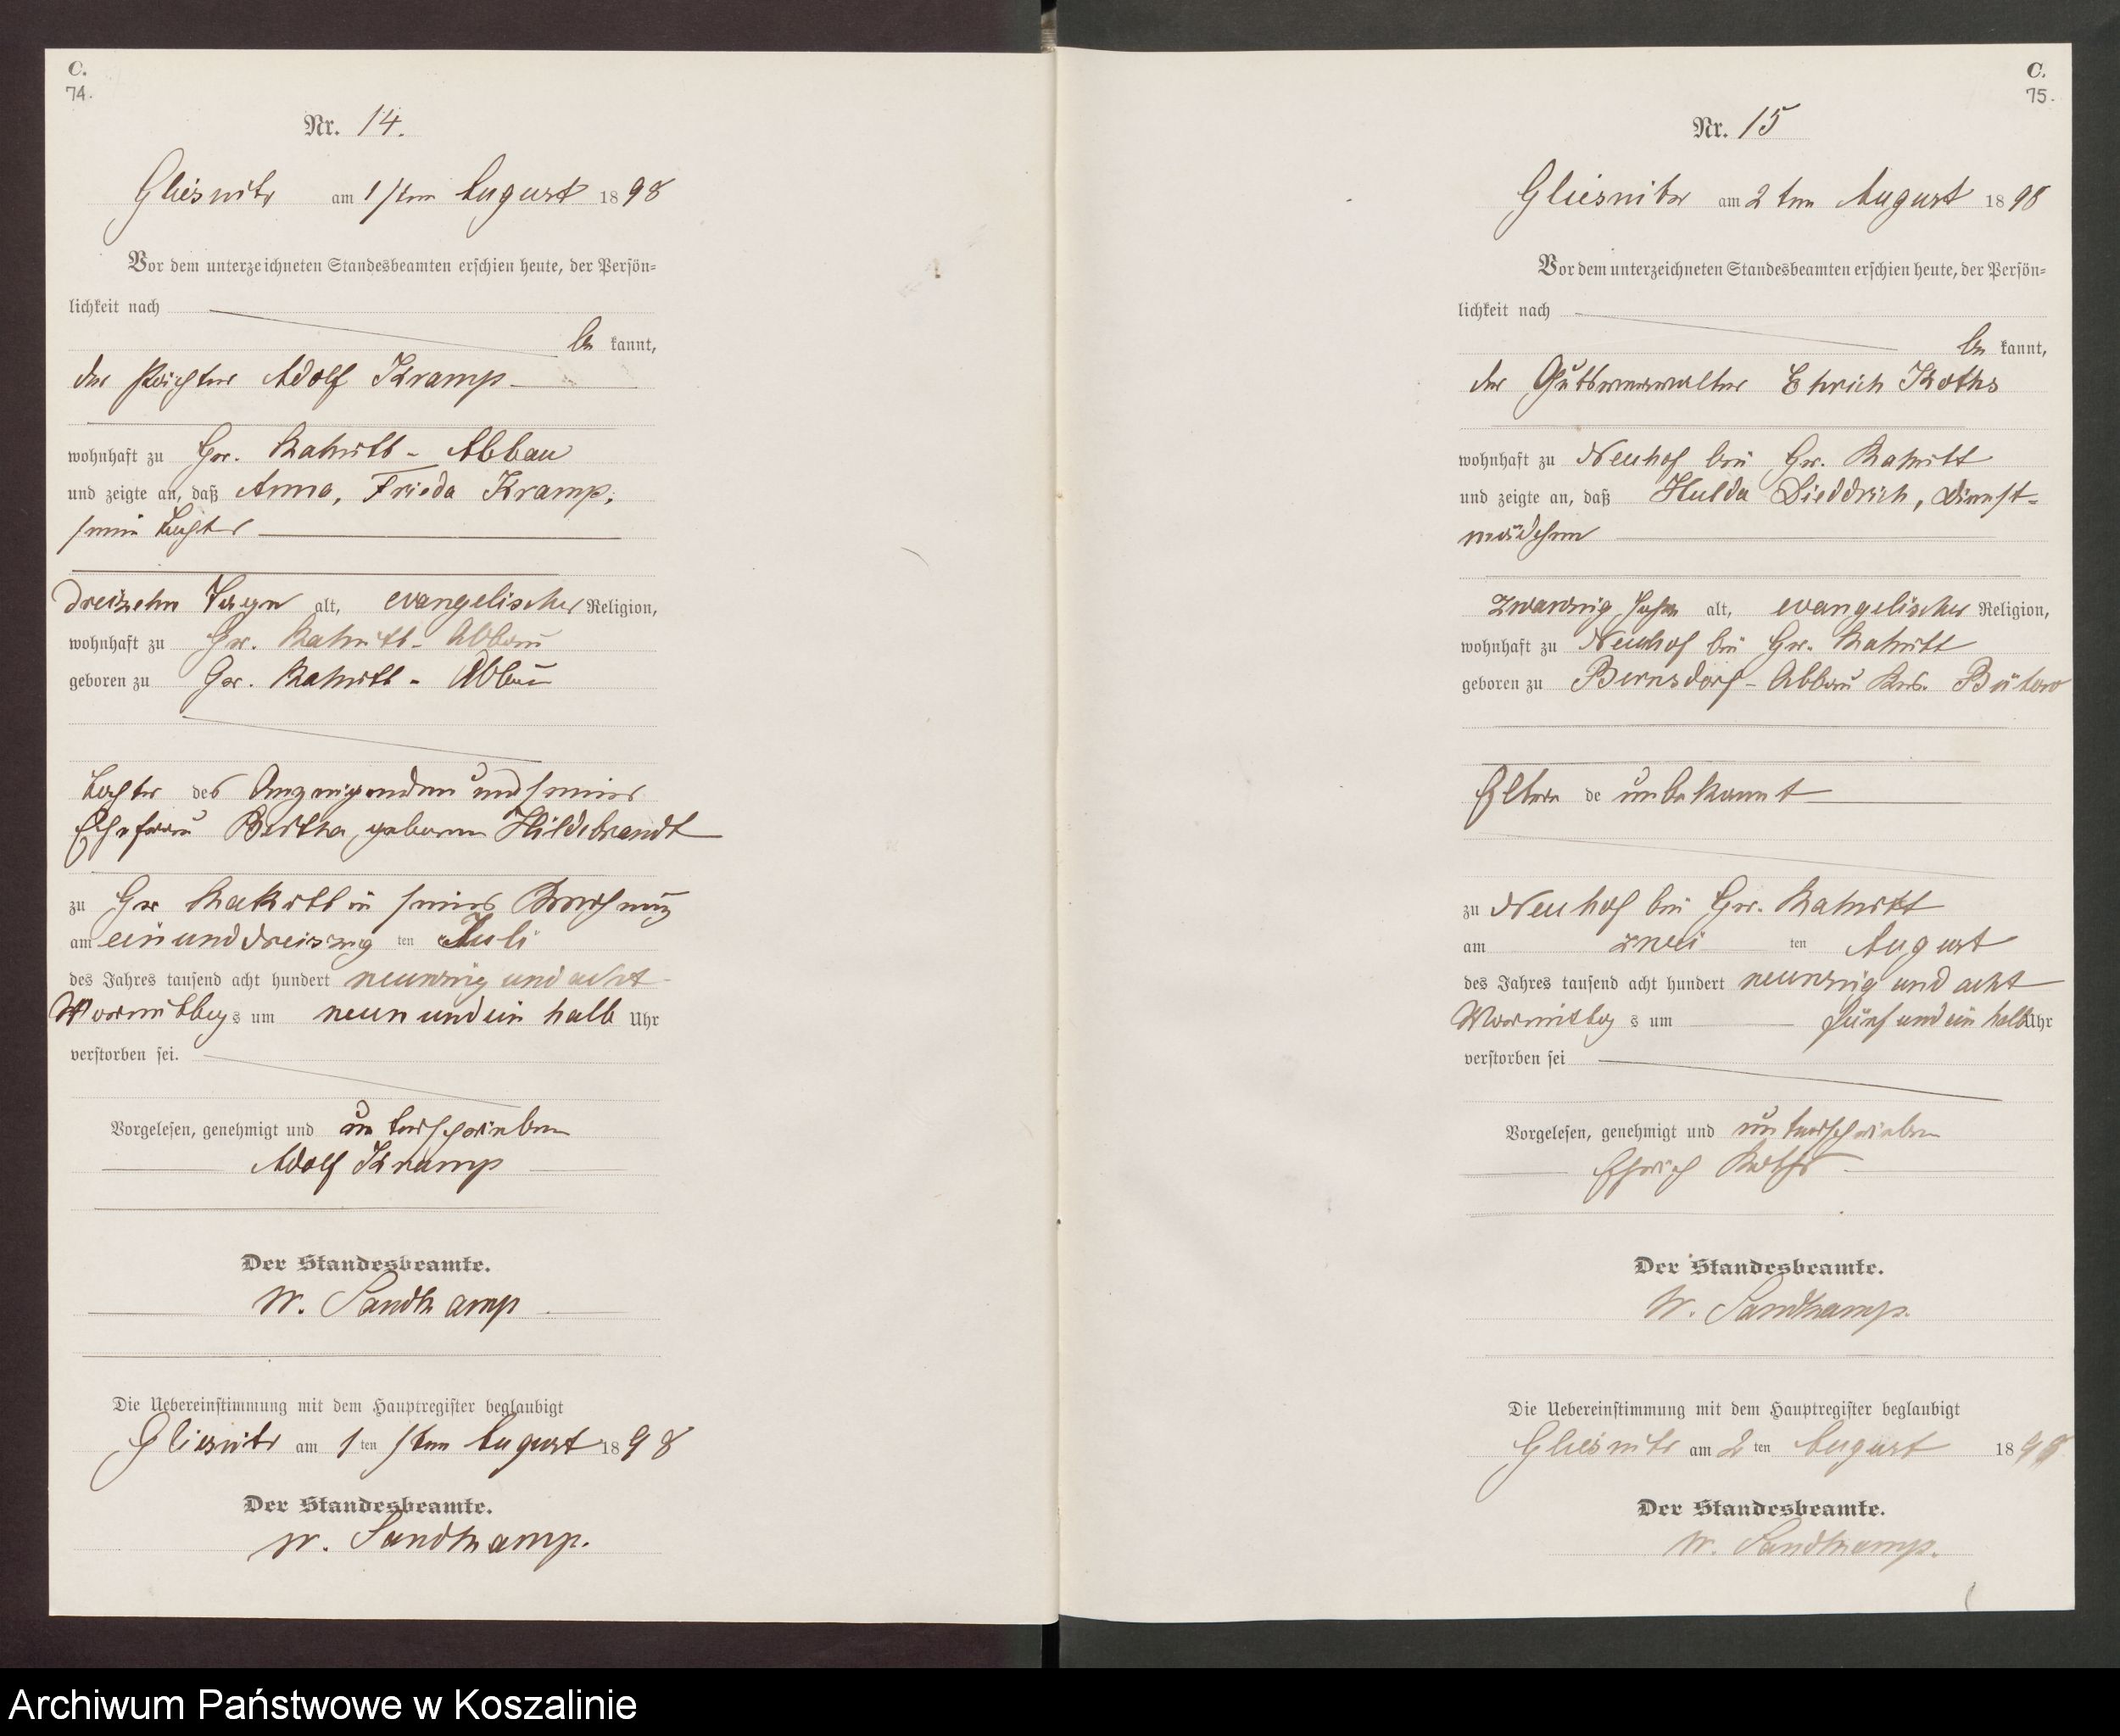 C.
74.
Nr. 14.
Gliesnitz am 1/ten August 1898
Vor dem unterzeichneten Standesbeamten erschien heute, der Persön=
lichkeit nach
be kannt,
der Pächter Adolf Kramp
wohnhaft zu Gr. Rakitt - Abbau
und zeigte an, daß Anna, Frieda Kramp,
seine Tochter
dreizehn Tagen alt, evangelischer Religion,
wohnhaft zu Gr. Rakitt - Abbau
geboren zu Gr. Rakitt - Abbau
Tochter des Anzeigenden und seiner
Ehefrau Bertha, geborene Hildebrandt
zu Gr Rakitt in seiner Wohnung
am einunddreiszig ten Juli
des Jahres tausend acht hundert neunzig und acht
Vormittags um neun und ein halb Uhr
verstorben sei.
Vorgelesen, genehmigt und unterschrieben
Adolf Kramp
Der Standesbeamte.
W. Sandkamp
Die Uebereinstimmung mit dem Hauptregister beglaubigt
Gliesnitz am 1 ten /ten August 1898
Der Standesbeamte.
W. Sandkamp.
C.
75.
Nr. 15
Gliesnitz am 2 ten August 1898
Vor dem unterzeichneten Standesbeamten erschien heute, der Persön=
lichkeit nach
be kannt,
der Gutsverwalter Ehrich Koths
wohnhaft zu Neuhof bei Gr. Rakitt
und zeigte an, daß Hulda Dieddrich, Dienst=
mädchen
zwanzig Jahre alt, evangelischer Religion,
wohnhaft zu Neuhof bei Gr. Rakitt
geboren zu Bernsdorf - Abbau Krs. Bütow
Eltern de unbekannt
zu Neuhof bei Gr. Rakitt
am zwei ten August
des Jahres tausend acht hundert neunzig und acht
Vormittag s um fünf und ein halb Uhr
verstorben sei
Vorgelesen, genehmigt und unterschrieben
Ehrich Koths
Der Standesbeamte.
W. Sandkamp.
Die Uebereinstimmung mit dem Hauptregister beglaubigt
Gliesnitz am 2 ten August 1898
Der Standesbeamte.
W. Sandkamp.
Archiwum Państwowe w Koszalinie